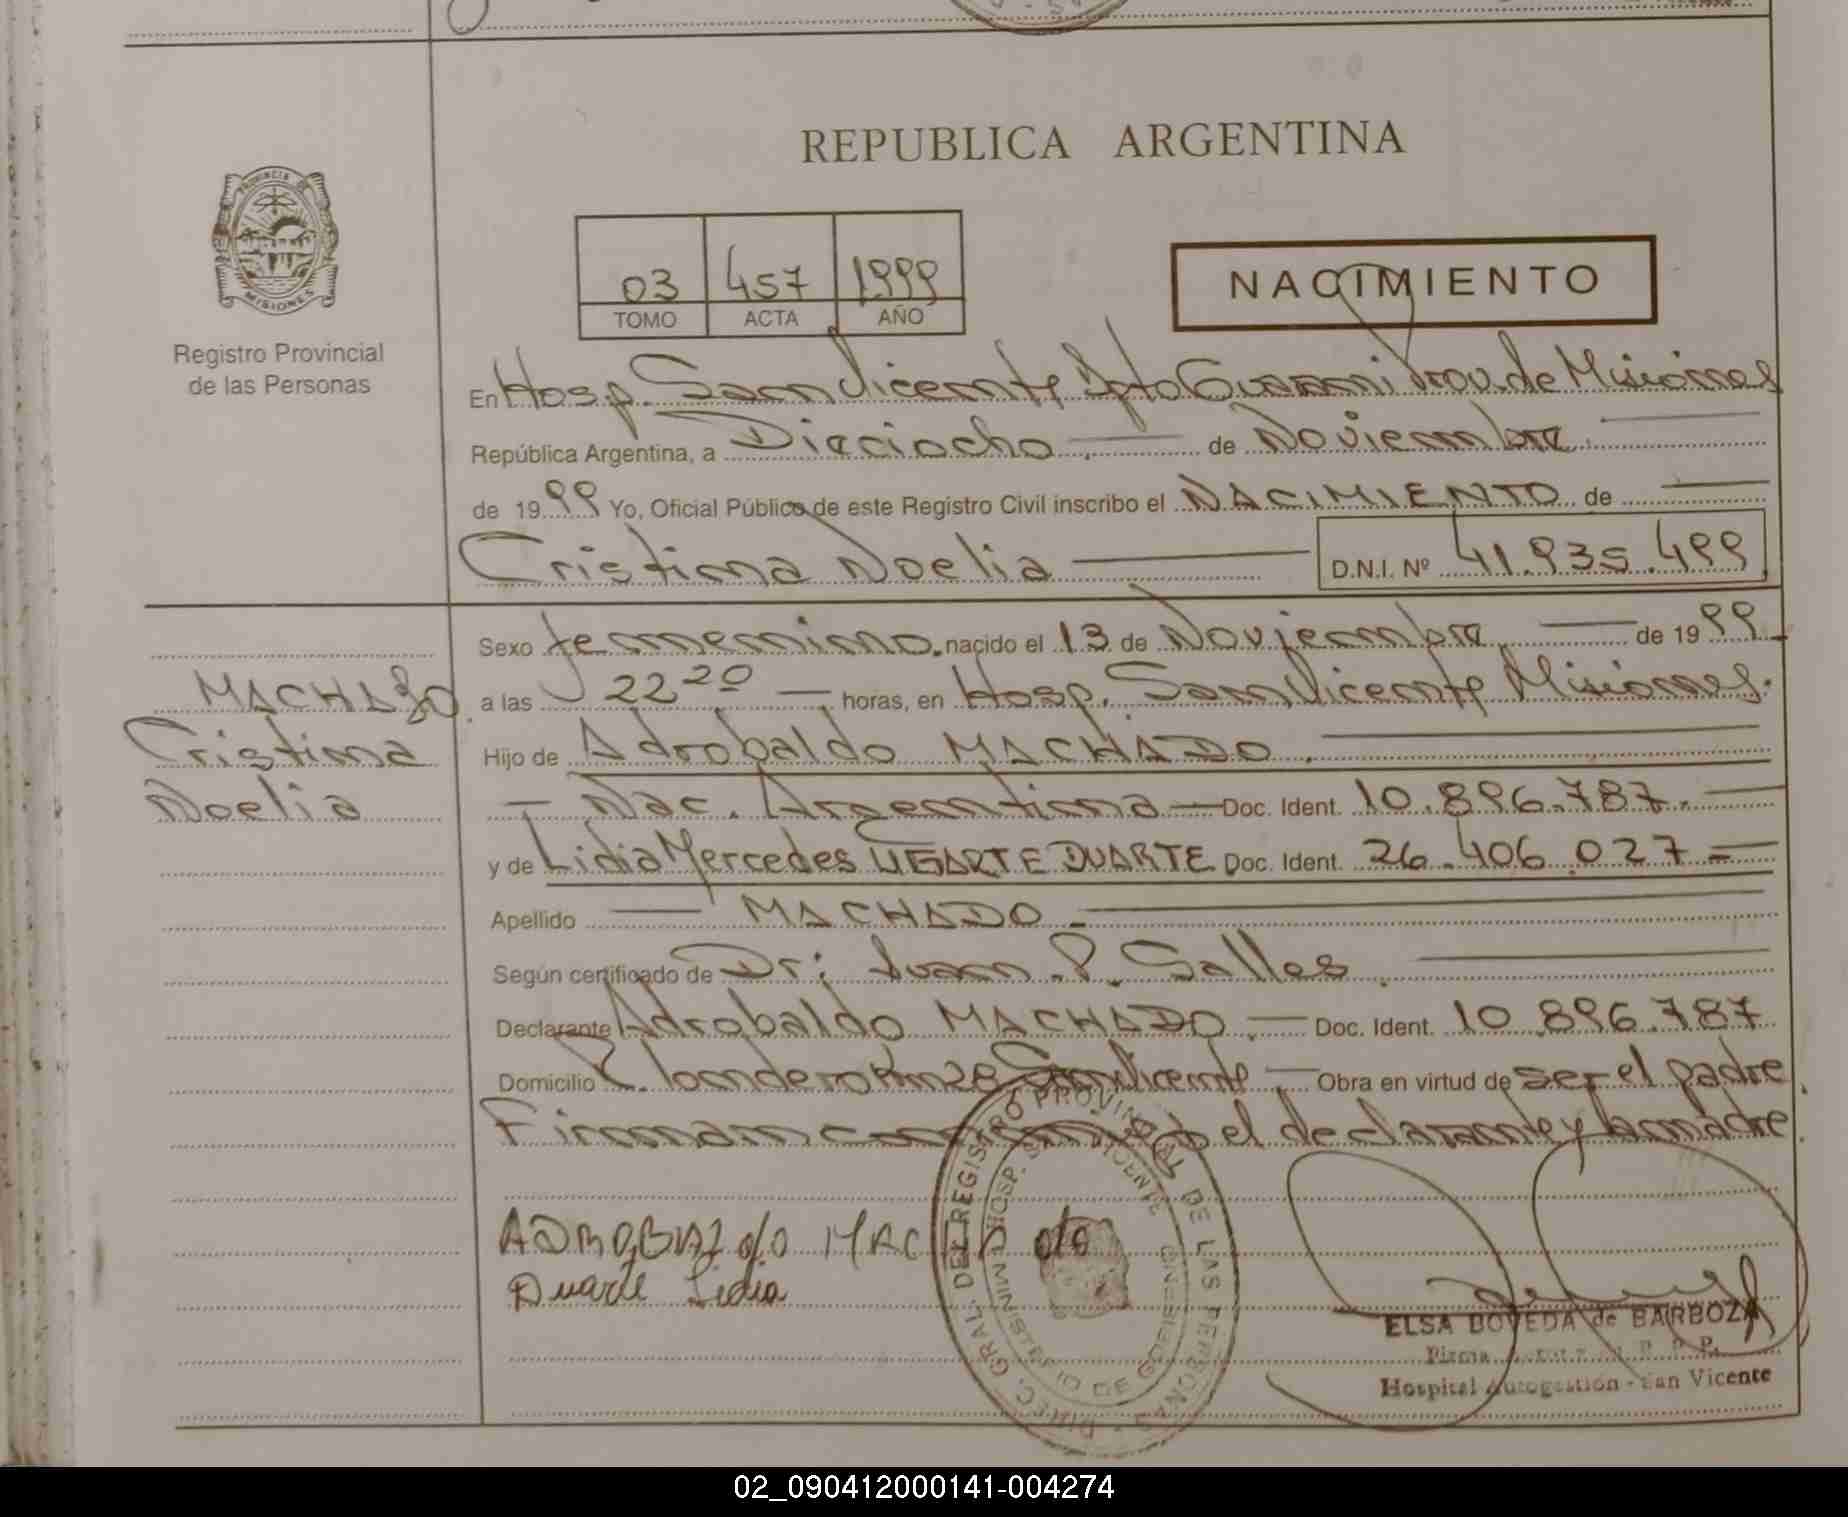 REPUBLICA ARGENTINA
PROVINCIA DE
MISIONES
Registro Provincial
de las Personas
03 457 1999
TOMO ACTA AÑO
NACIMIENTO
En Hosp. San Vicente Dpto Guarani Prov. de Misiones
República Argentina, a Dieciocho de Noviembre
de 1999 Yo, Oficial Público de este Registro Civil inscribo el NACIMIENTO de
Cristina Noelia D.N.I. Nº 41.935.499
Sexo femenino, nacido el 13 de Noviembre de 1999
MACHADO
Cristina
Noelia
a las 22 20 horas, en Hosp. San Vicente Misiones.
Hijo de Adrobaldo MACHADO.
Nac. Argentina Doc. Ident. 10.896.787.
y de Lidia Mercedes UGARTE DUARTE Doc. Ident. 26.406.027
Apellido MACHADO
Según certificado de Dr: Juan P. Salles
Declarante Adrobaldo MACHADO. Doc. Ident. 10.896.787
Domicilio Km 28 San Vicente Obra en virtud de ser el padre.
Firman el declarante y la madre.
ADROBALdo MACHAdo
Duarte Lidia
DIREC. GRAL. DEL REGISTRO PROVINCIAL DE LAS PERSONAS
MINISTERIO DE GOBIERNO
ELSA BOVEDA de BARBOZA
Firma R. P. P.
Hospital Autogestión - San Vicente
02_090412000141-004274